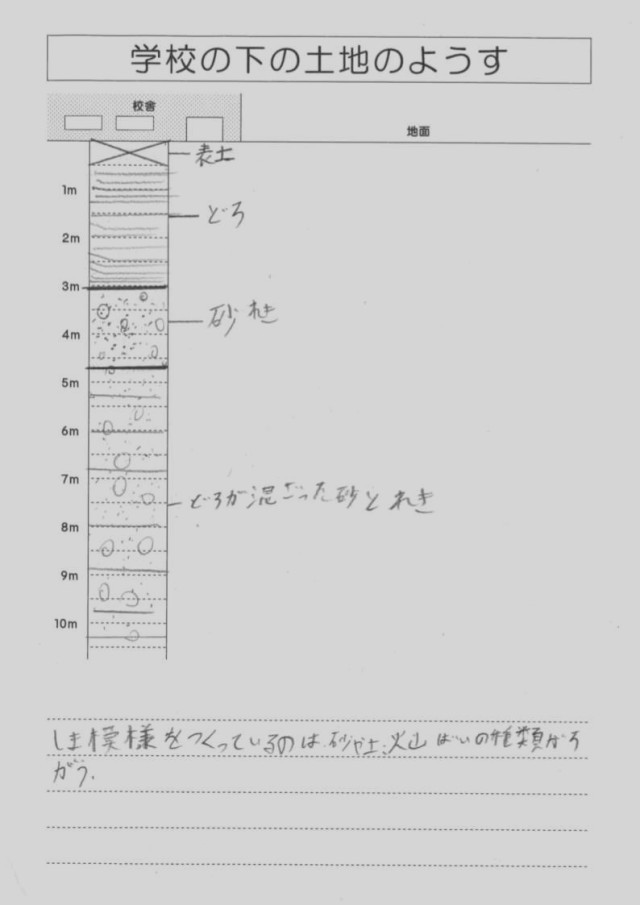 学校の下の土地のようす
校舎
地面
表土
1m
どろ
2m
3m
砂れき
4m
5m
6m
7m
どろが混ざった砂とれき
8m
9m
10m
しま模様をつくっているのは、砂や土、火山ばいの種類がち
がう.